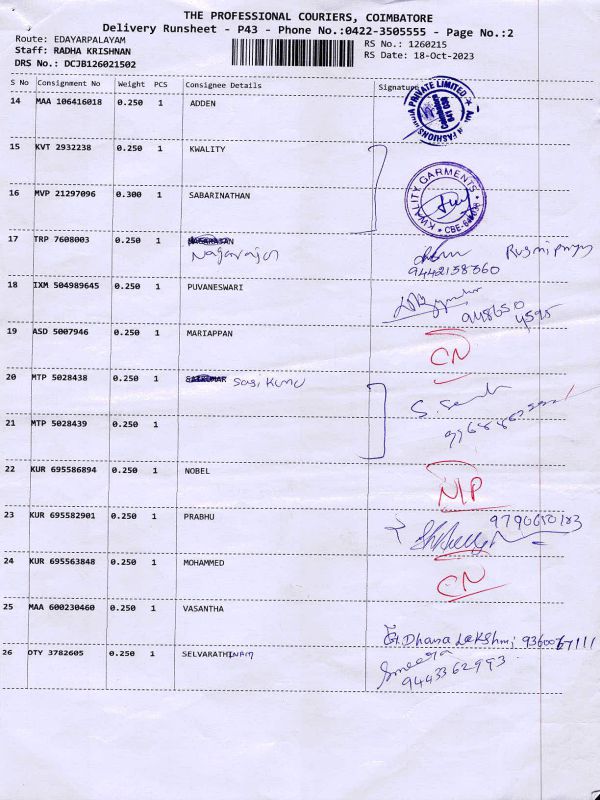 THE PROFESSIONAL COURIERS, COIMBATORE
Delivery Runsheet - P43 - Phone No.:0422-3505555 - Page No.:2
Route: EDAYARPALAYAM
Staff: RADHA KRISHNAN RS No.: 1260215
DRS No.: DCJB126021502 RS Date: 18-Oct-2023
S No Consignment No Weight PCS Consignee Details Signature
PRIVATE LIMITED
FASHIONS
14 MAA 106416018 0.250 1 ADDEN
15 KVT 2932238 0.250 1 KWALITY
KWALITY GARMENTS
16 MVP 21297096 0.300 1 SABARINATHAN
17 TRP 7608003 0.250 1
Nagarajan
9442138360
18 IXM 504989645 0.250 1 PUVANESWARI
19 ASD 5007946 0.250 1 MARIAPPAN CN
20 MTP 5028438 0.250 1 SASIKUMAR Sasi Kumar
21 MTP 5028439 0.250 1
22 KUR 695586894 0.250 1 NOBEL NP
23 KUR 695582901 0.250 1 PRABHU
24 KUR 695563848 0.250 1 MOHAMMED CN
25 MAA 600230460 0.250 1 VASANTHA
G. Dhana Lakshmi 9360067111
26 OTY 3782605 0.250 1 SELVARATHINAM
Smeera
9443362993